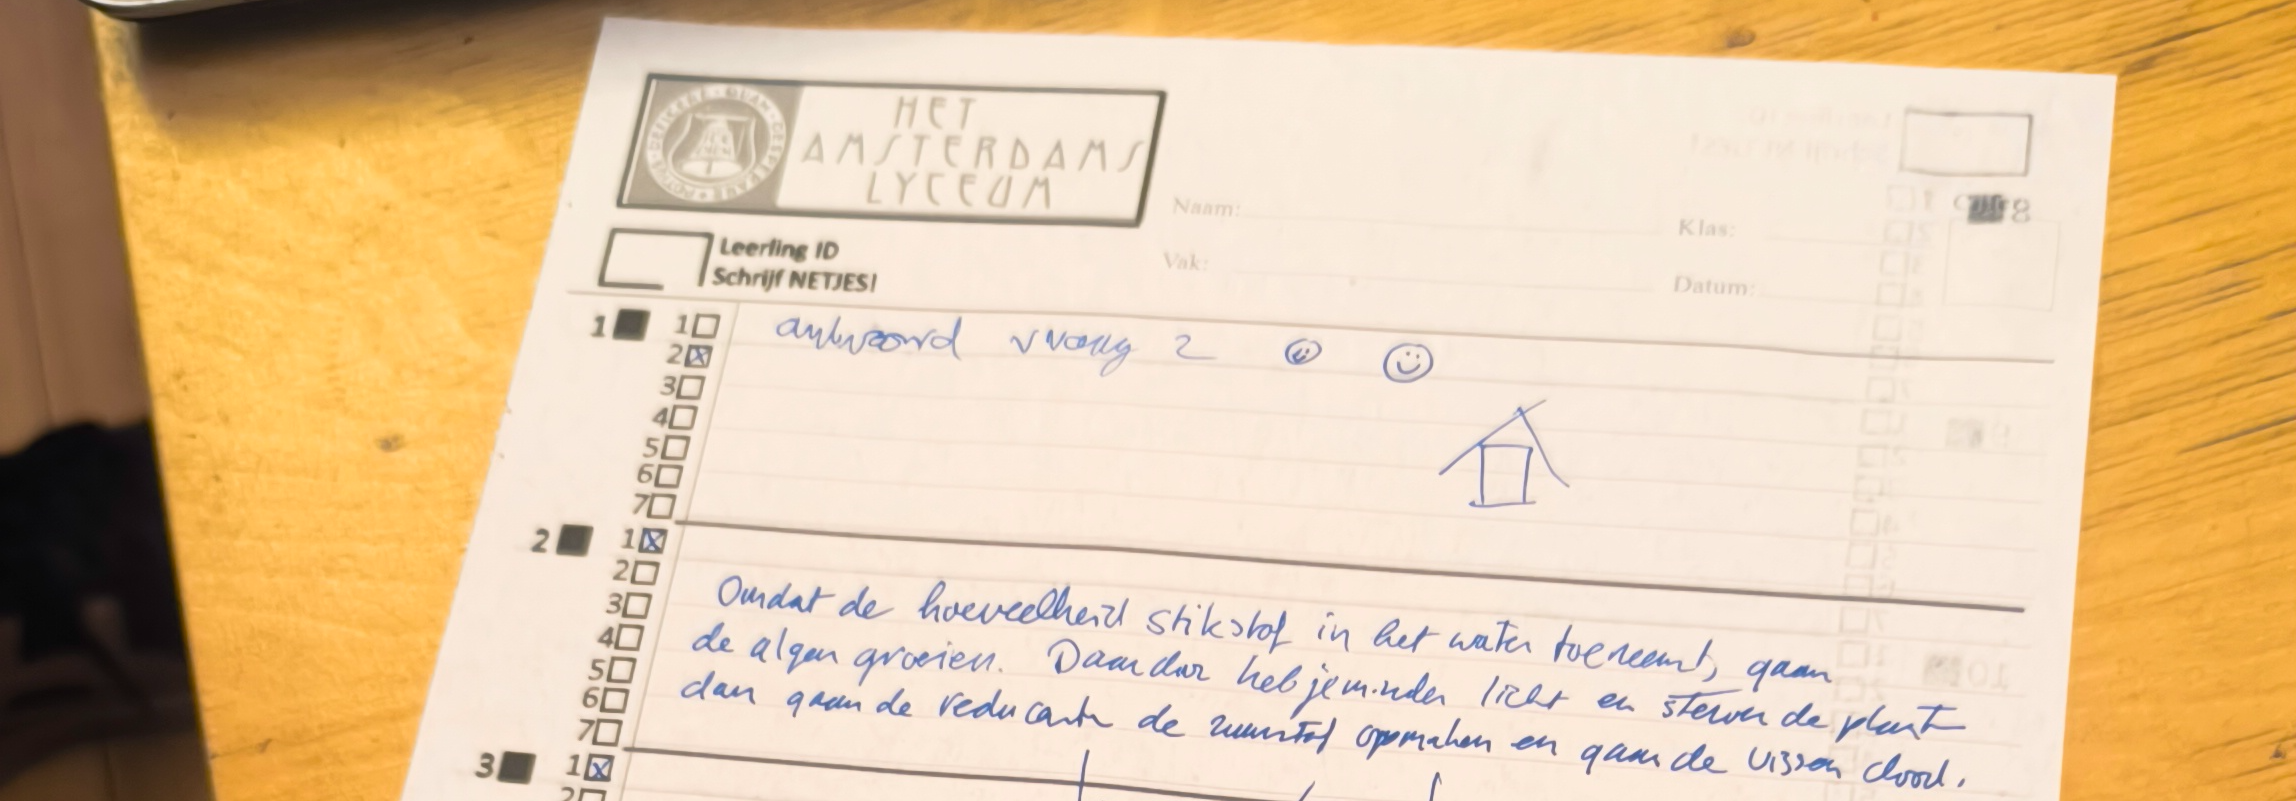 HET
AMSTERDAMS
LYCEUM
Naam:
Klas:
Vak:
Datum:
Leerling ID
Schrijf NETJES!
1 1
antwoord vraag 2
2
3
4
5
6
7
2 1
2
3
4
5
6
7
Omdat de hoeveelheid stikstof in het water toeneemt, gaan
de algen groeien. Daardoor heb je minder licht en sterven de plant
dan gaan de reducenten de zuurstof opmaken en gaan de vissen dood.
3 1
2